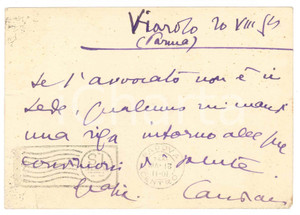 Viarolo 20 VIII 51
(Parma)
Se l'avvocato non è in
sede, qualcuno mi mandi
una riga intorno alle
condizioni
grazie.